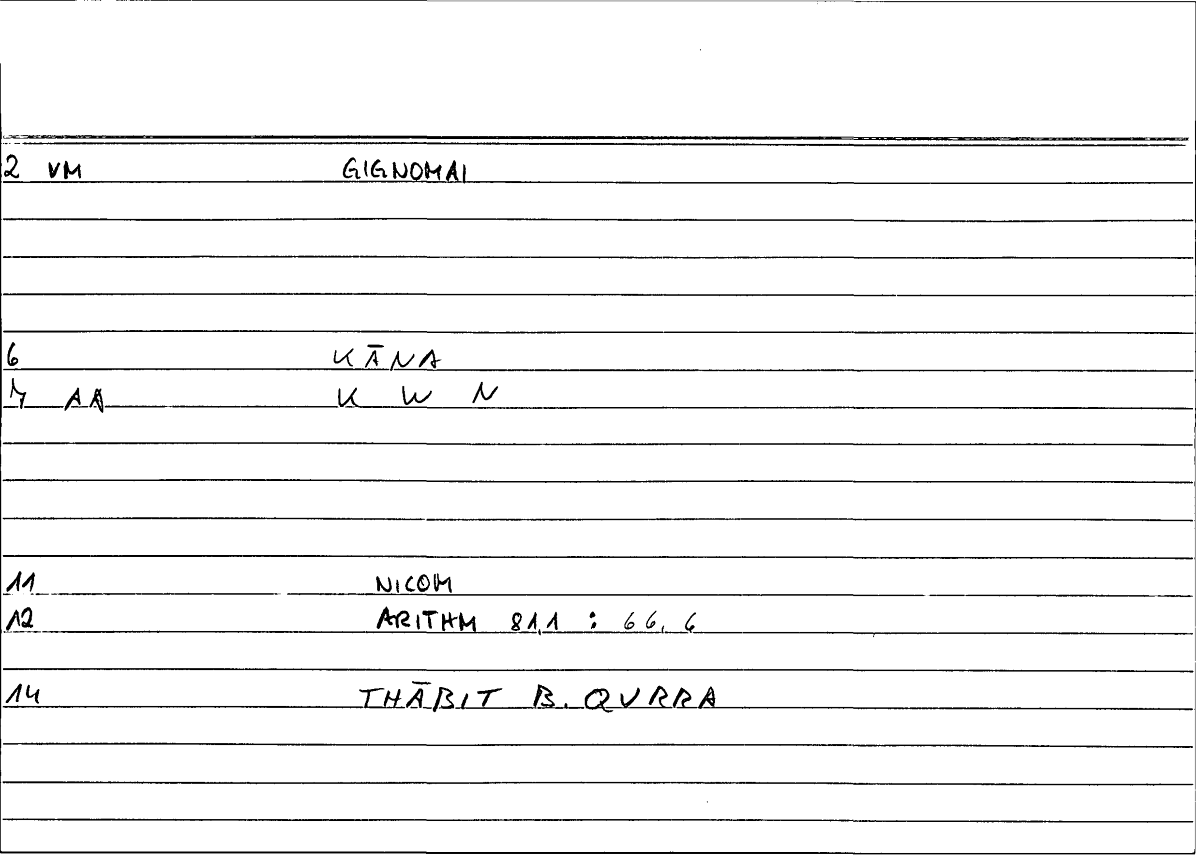 2 VM GIGNOMAI
6 KĀNA
7 AA K W N
11 NICOM
12 ARITHM 81,1 : 66, 6
14 THĀBIT B. QURRA